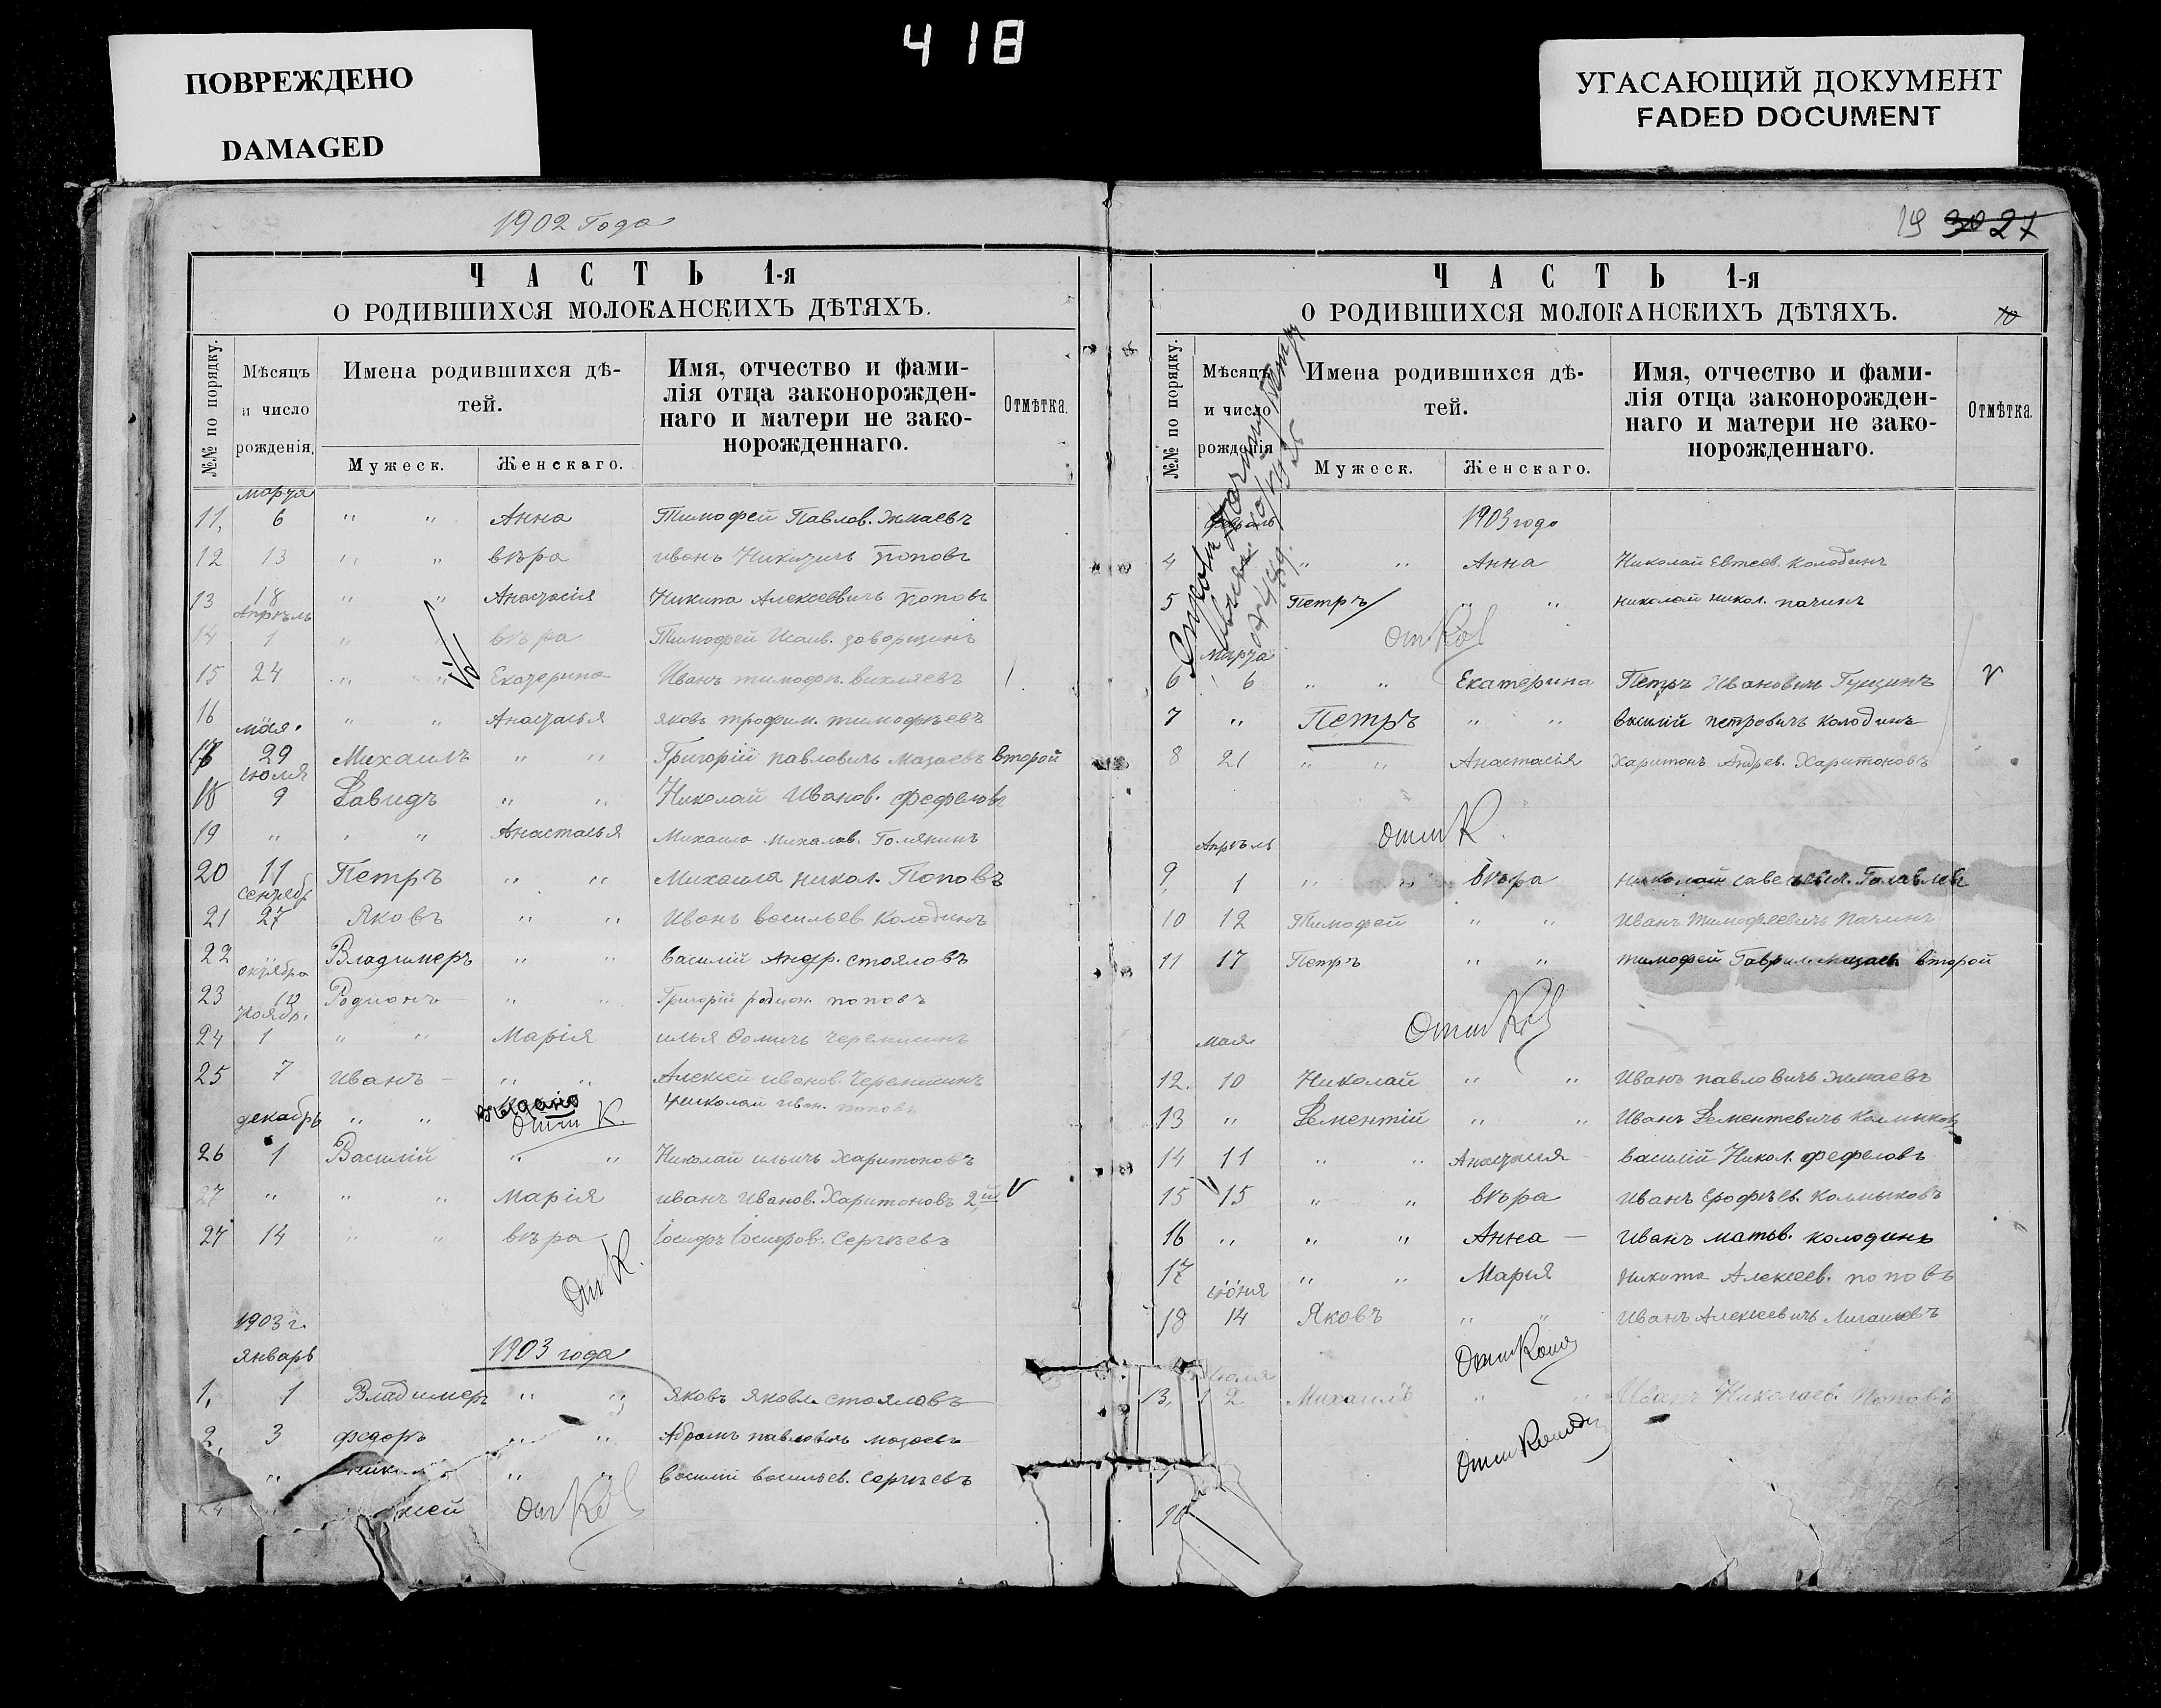 418
ПОВРЕЖДЕНО
DAMAGED
УГАСАЮЩИЙ ДОКУМЕНТ
FADED DOCUMENT
1902 Года
ЧАСТЬ 1-я
О РОДИВШИХСЯ МОЛОКАНСКИХЪ ДѢТЯХЪ.
№№ по порядку.
Мѣсяцъ и число рожденія.
Имена родившихся дѣтей.
Мужеск.
Женскаго.
Имя, отчество и фамилія отца законорожденнаго и матери не законорожденнаго.
Отмѣтка.
марта
11, 6 " " Анна Тимофей Павлов. Жмаевъ
12 13 " " вѣра иванъ Никитичь поповъ
13 18 " " Анастасія Никита Алексеевичь поповъ
Апрѣль
14 1 " вѣра Тимофей Исаив.
15 24 " " Екатерина Иванъ тимофѣ.
16 " " Анастасья яковъ трофим. тимофѣевъ
мая
17 29 Михаилъ " " Григорій павловичь мазаевъ второй
июля
18 9 Давидъ " " Николай Иванов. Фефеловъ
19 " " " Анастасья Михаила михалов. Голякинъ
20 11 Петръ " " Михаила никол. Поповъ
сентебр
21 27 Яковъ " " Иванъ васильев. Колодинъ
22 Владимеръ " " василій Андр. стояловъ
октября
23 10 Родионъ " " Григорій родион. поповъ
Ноябр.
24 1 " " Марія илья Фомичь черемисинъ
25 7 Иванъ " " Алексей иванов. Черемисинъ
декабрь " " выдано Николай иван. поповъ
Отм К.
26 1 Василій " " Николай ильичь Харитоновъ
27 " " " Марія иванъ Иванов. Харитоновъ 2й V
27 14 " " вѣра Іосифъ Іосифов. Сергѣевъ
Отм К.
1903 г.
январь 1903 года
1. 1 Владимеръ " " яковъ яковл. стояловъ
2. 3 федоръ " " Абрамъ павловичь мазаевъ
" " " василій васильев. сергѣевъ
19 30 27
ЧАСТЬ 1-я
О РОДИВШИХСЯ МОЛОКАНСКИХЪ ДѢТЯХЪ.
10
№№ по порядку.
Мѣсяцъ и число рожденія
Имена родившихся дѣтей.
Мужеск.
Женскаго.
Имя, отчество и фамилія отца законорожденнаго и матери не законорожденнаго.
Отмѣтка.
февраль 1903 годо
4 " " Анна Николай Евтеев. Колодинъ
5 Петръ " " николай никол. пачинъ
Марта
6 6 " " Екатерина Петръ Ивановичь Гущинъ V
7 " Петръ " " василій петровичь колодинъ
8 21 " " Анастасія Харитонъ Андрев. Харитоновъ
Отм К.
Апрѣль
9, 1 " " вѣра николай
10 12 Тимофей " " Иванъ Тимофеевичь пачинъ
11 17 Петръ " " тимофей Гаврил. мазаев. второй
мая
12. 10 Николай " " Иванъ павловичь жмаевъ
13 " Дементій " " Иванъ Дементевичь Калмыковъ
14 11 " " Анастасия василій Никол. фефеловъ
15 15 " " вѣра Иванъ Ерофѣев. Калмыковъ
16 " " " Анна Иванъ матьв. колодинъ
17 " " Мария Никита Алексеев. поповъ
июня
18 14 Яковъ " " Иванъ Алексеевичь
июля
2 Михаилъ " " Иванъ Николаев. Поповъ
20